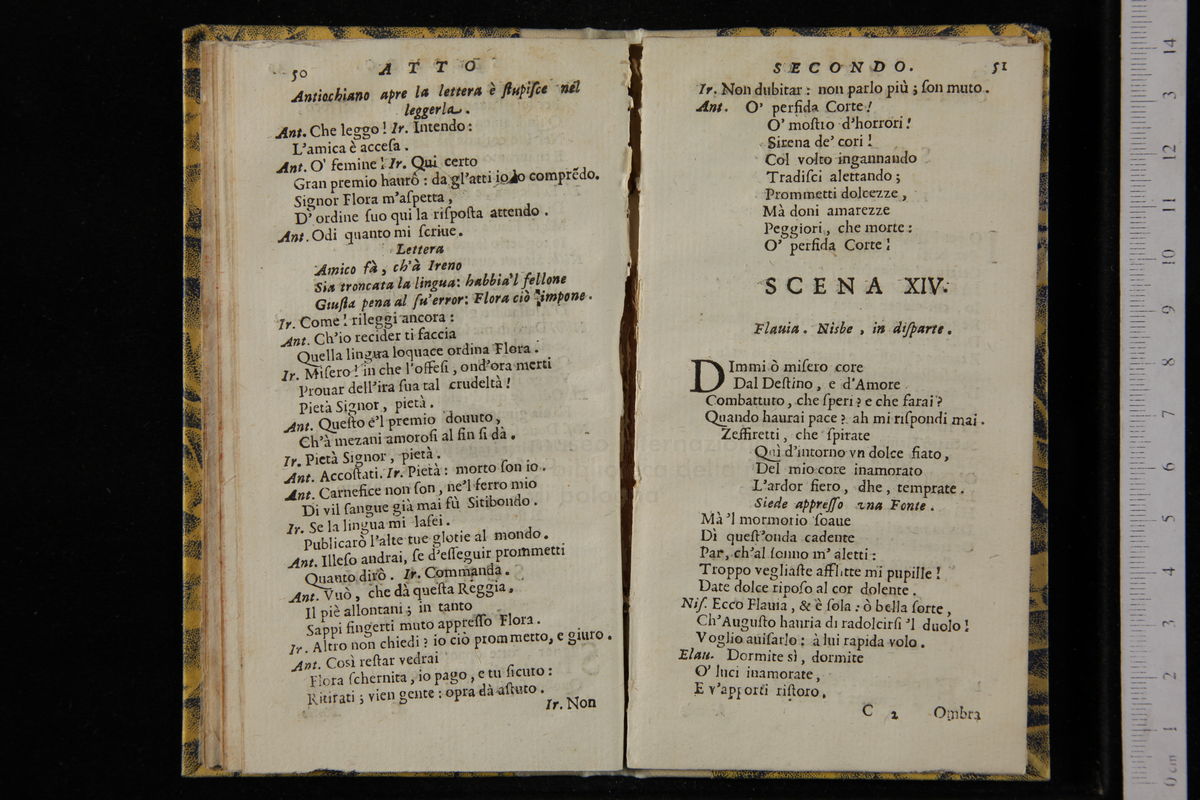 50 ATTO
Antiochiano apre la lettera è ſtupiſce nel
leggerla.
Ant. Che leggo! Ir. Intendo:
L'amica è acceſa.
Ant. O' femine! Ir. Qui certo
Gran premio haurò: da gl'atti io lo comprẽdo.
Signor Flora m'aſpetta,
D'ordine ſuo qui la riſpoſta attendo.
Ant. Odi quanto mi ſcriue.
Lettera
Amico fà, ch'à Ireno
Sia troncata la lingua: habbia'l fellone
Giuſta pena al ſu'error: Flora ciò t'impone.
Ir. Come! rileggi ancora:
Ant. Ch'io recider ti faccia
Quella lingua loquace ordina Flora.
Ir. Miſero! in che l'offeſi, ond'ora merti
Prouar dell'ira ſua tal crudeltà!
Pietà Signor, pietà.
Ant. Queſto é'l premio douuto,
Ch'à mezani amoroſi al fin ſi dà.
Ir. Pietà Signor, pietà.
Ant. Accoſtati. Ir. Pietà: morto ſon io.
Ant. Carnefice non ſon, ne'l ferro mio
Di vil ſangue già mai fù Sitibondo.
Ir. Se la lingua mi laſci.
Publicarò l'alte tue glotie al mondo.
Ant. Illeſo andrai, ſe d'eſſeguir prommetti
Quanto dirô. Ir. Commanda.
Ant. Vuò, che dà queſta Reggia,
Il piè allontani; in tanto
Sappi fingerti muto appreſſo Flora.
Ir. Altro non chiedi? io ciò prommetto, e giuro.
Ant. Così reſtar vedrai
Flora ſchernita, io pago, e tu ſicuto:
Ritirati; vien gente: opra dà aſtuto.
Ir. Non
SECONDO. 51
Ir. Non dubitar: non parlo più; ſon muto.
Ant. O' perfida Corte!
O' moſtio d'horrori!
Sirena de' cori!
Col volto ingannando
Tradiſci alettando;
Prommetti dolcezze,
Mà doni amarezze
Peggiori, che morte:
O' perfida Corte!
SCENA XIV.
Flauia. Nisbe, in diſparte.
DImmi ò miſero core
Dal Deſtino, e d'Amore
Combattuto, che ſperi? e che farai?
Quando haurai pace? ah mi riſpondi mai.
Zeffiretti, che ſpirate
Quì d'intorno vn dolce fiato,
Del mio core inamorato
L'ardor fiero, dhe, temprate.
Siede appreſſo vna Fonte.
Mà 'l mormotio ſoaue
Dì queſt'onda cadente
Par, ch'al ſonno m'aletti:
Troppo vegliaſte afflitte mi pupille!
Date dolce ripoſo al cor dolente.
Niſ. Ecco Flauia, & è ſola: ò bella ſorte,
Ch'Auguſto hauria di radolcirſi 'l duolo!
Voglio auiſarlo: à lui rapida volo.
Elau. Dormite sì, dormite
O' luci inamorate,
E v'apporti riſtoro,
C 2 Ombra